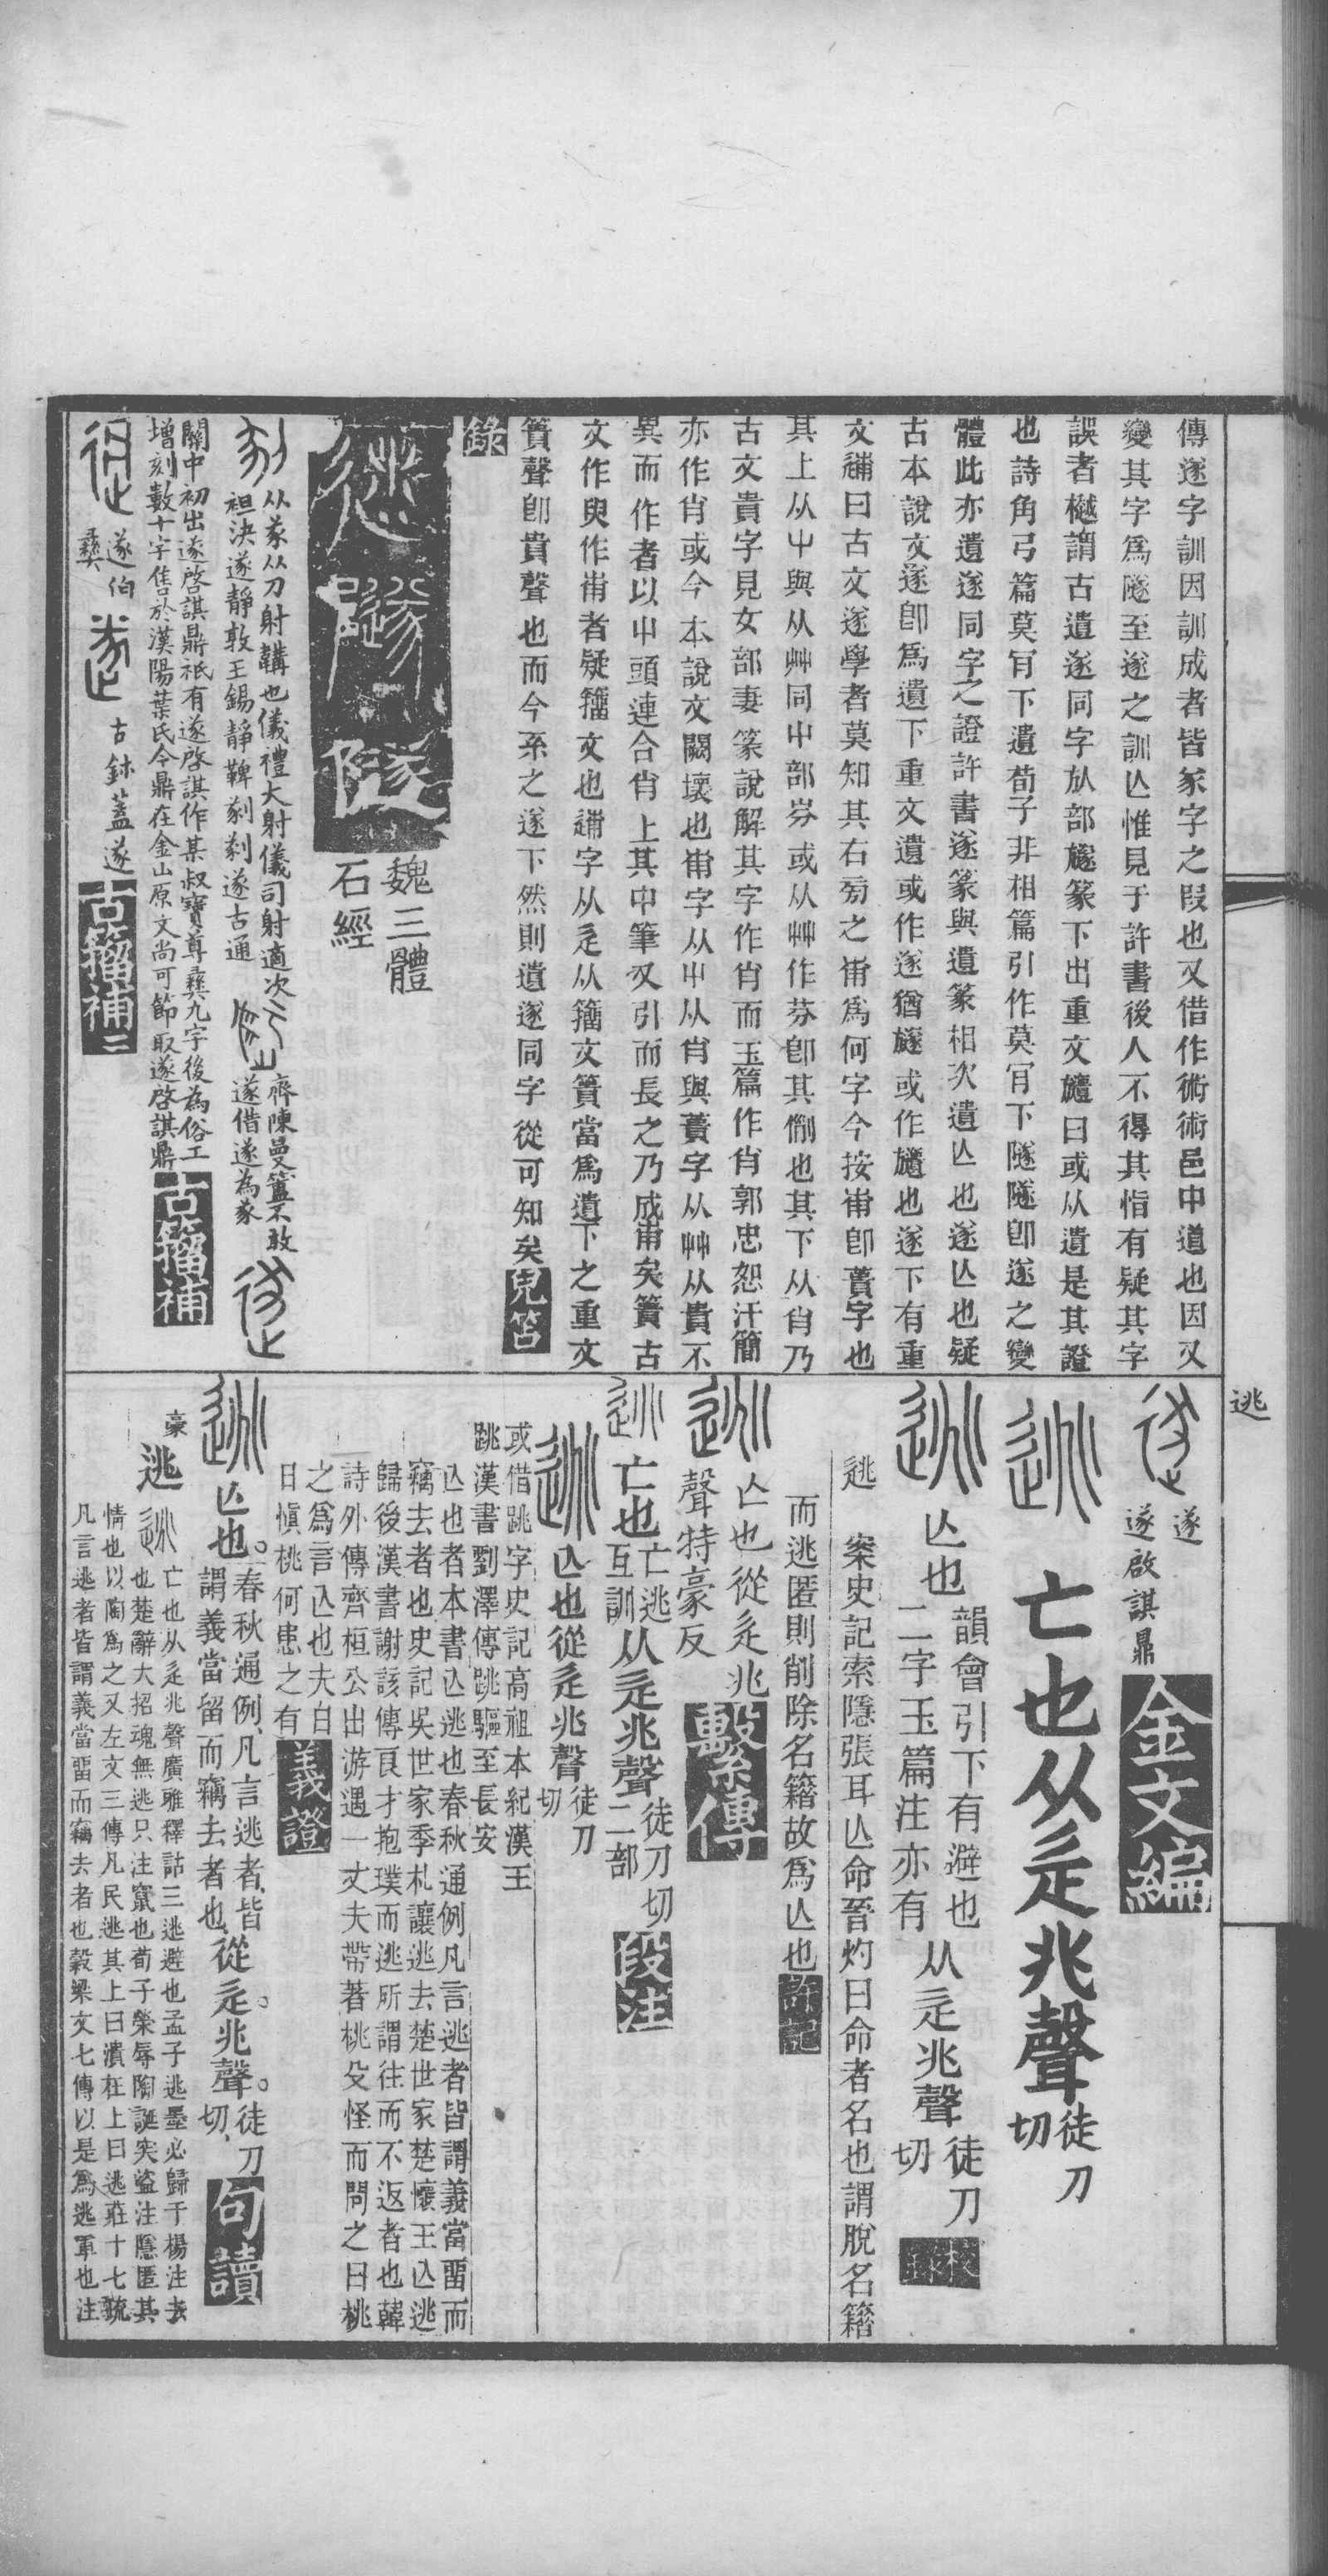 傳遂字訓因訓成者皆㒸字之叚也又借作術術邑中道也因又
變其字爲隧至遂之訓亾惟見于許書後人不得其恉有疑其字
誤者樾謂古遺遂同字㫃部旞篆下出重文䡵曰或从遺是其證
也詩角弓篇莫肎下遺荀子非相篇引作莫肎下隧隧卽遂之變
體此亦遺遂同字之證許書遂篆與遺篆相次遺亾也遂亾也疑
古本說文遂卽爲遺下重文遺或作遂猶旞或作䡵也遂下有重
文𨗹曰古文遂學者莫知其右㫄之𢍰爲何字今按𢍰卽蕢字也
其上从屮與从艸同屮部岁或从艸作芬卽其例也其下从肖乃
古文貴字見女部妻篆說解其字作肖而玉篇作肖郭忠恕汗簡
亦作肖或今本說文闕壞也𢍰字从屮从肖與蕢字从艸从貴不
異而作者以屮頭連合肖上其中筆又引而長之乃成𢍰矣蕢古
文作臾作𢍰者疑籒文也𨗹字从辵从籒文蕢當爲遺下之重文
蕢聲卽貴聲也而今系之遂下然則遺遂同字從可知矣兒笘
錄
魏三體
石經
从㒸从刀射韝也儀禮大射儀司射適次
袒決遂靜敦王錫靜鞞剢剢遂古通
齊陳曼簠不敢
遂借遂為㒸
關中初出遂啓諆鼎祇有遂啓諆作某叔寶尊彝九字後為俗工
增刻數十字售於漢陽葉氏今鼎在金山原文尚可節取遂啓諆鼎
古籀補
遂伯
彝
古鉥蓋遂
古籀補二
逃
遂
遂啟諆鼎
金文編
亡也从辵兆聲徒刀
切
亾也韻會引下有避也
二字玉篇注亦有从辵兆聲徒刀
切
校錄
逃 案史記索隱張耳亾命晉灼曰命者名也謂脫名籍
而逃匿則削除名籍故爲亾也許記
亾也從辵兆
聲特豪反
繫傳
亡也亡逃
互訓从辵兆聲徒刀切
二部
段注
亾也從辵兆聲徒刀
切
或借跳字史記高祖本紀漢王
跳漢書劉澤傳跳驅至長安
亾也者本書亾逃也春秋通例凡言逃者皆謂義當畱而
竊去者也史記吳世家季札讓逃去楚世家楚懷王亾逃
歸後漢書謝該傳良才抱璞而逃所謂往而不返者也韓
詩外傳齊桓公出游遇一丈夫帶著桃殳怪而問之曰桃
之爲言亾也夫白
日愼桃何患之有
義證
亾也。春秋通例、凡言逃者、皆
謂義當留而竊去者也、從辵。兆聲。徒刀
切、
句讀
豪
逃
亡也从辵兆聲廣雅釋詁三逃避也孟子逃墨必歸于楊注去
也楚辭大招魂無逃只注竄也荀子榮辱陶誕突盜注隱匿其
情也以陶爲之又左文三傳凡民逃其上曰潰在上曰逃莊十七疏
凡言逃者皆謂義當畱而竊去者也穀梁文七傳以是爲逃軍也注